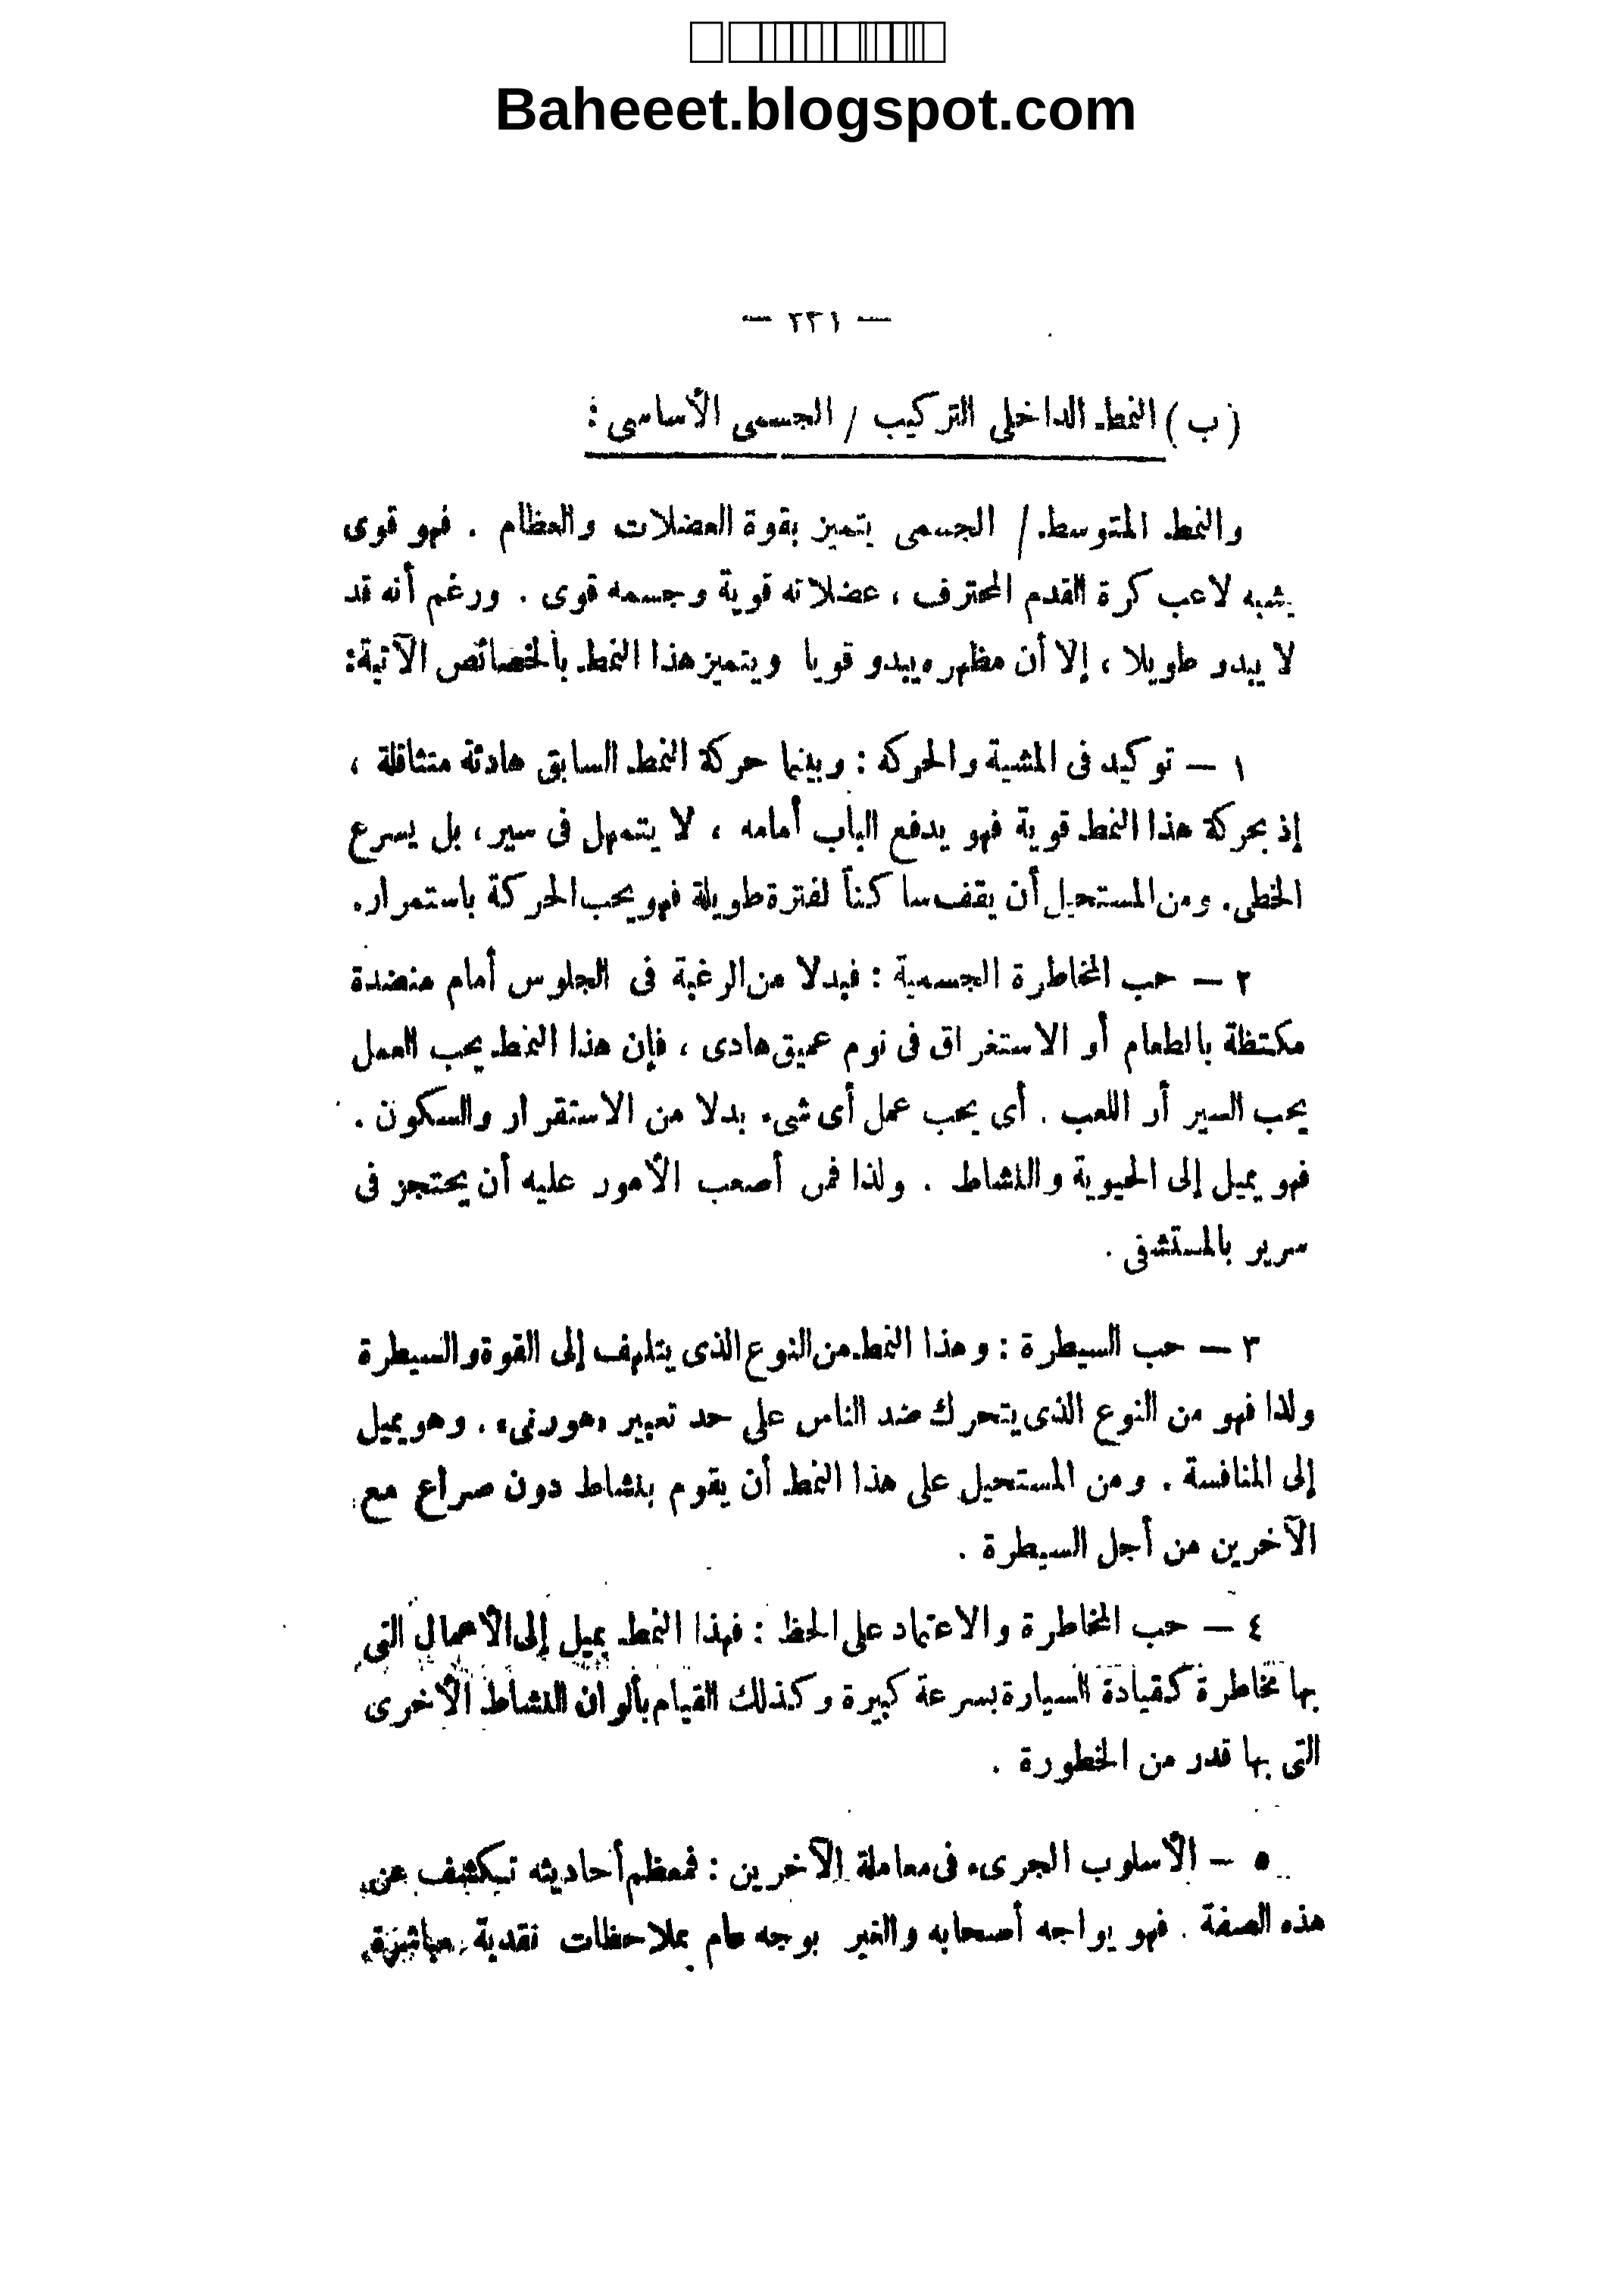 Baheeet.blogspot.com
— ٢٣١ —
( ب ) النمط الداخلى التركيب / الجسمى الأساسى :
والنمط المتوسط / الجسمى يتميز بقوة العضلات والعظام . فهو قوى
يشبه لاعب كرة القدم المحترف ، عضلاته قوية وجسمه قوى . ورغم أنه قد
لا يبدو طويلا ، إلا أن مظهره يبدو قويا ويتميز هذا النمط بالخصائص الآتية :
١ — توكيد فى المشية والحركه : وبينما حركة النمط السابق هادئة متثاقلة ،
إذ بحركة هذا النمط قوية فهو يدفع الباب أمامه ، لا يتمهل فى سير ، بل يسرع
الخطى . ومن المستحيل أن يقف ساكناً لفترة طويلة فهو يحب الحركة باستمرار .
٢ — حب المخاطرة الجسمية : فبدلا من الرغبة فى الجلوس أمام منضدة
مكتظة بالطعام أو الاستغراق فى نوم عميق هادى ، فإن هذا النمط يحب العمل
يحب السير أر اللعب . أى يحب عمل أى شىء بدلا من الاستقرار والسكون .
فهو يميل إلى الحيوية والنشاط . ولذا فمن أصعب الأمور عليه أن يحتجز فى
سرير بالمستشفى .
٣ — حب السيطرة : وهذا النمط من النوع الذى يتلهف إلى القوة والسيطرة
ولذا فهو من النوع الذى يتحرك ضد الناس على حد تعبير «هورنى» . وهو يميل
إلى المنافسة . ومن المستحيل على هذا النمط أن يقوم بنشاط دون صراع مع
الآخرين من أجل السيطرة .
٤ — حب المخاطرة والاعتماد على الحظ : فهذا النمط يميل إلى الأعمال التى
بها مخاطرة كقيادة السيارة بسرعة كبيرة وكذلك القيام بألوان النشاط الأخرى
التى بها قدر من الخطورة .
٥ — الأسلوب الجرىء فى معاملة الآخرين : فمعظم أحاديثه تكشف عن
هذه الصفة . فهو يواجه أصحابه والغير بوجه عام بملاحظات نقدية مباشرة